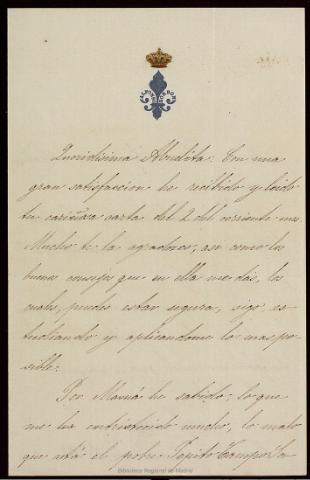 ALFONSO BORBON
Queridisima Abuelita: Con una
gran satisfaccion he recibido y leido
tu cariñosa carta del 2 del corriente mes
Mucho te la agradezco, asi como los
buenos consejos que en ella me das, los
cuales, puedes estar segura, sigo, es
tudiando y aplicandome lo mas po
sible.
Por Mamá he sabido, lo que
me ha entristecido mucho, lo malo
que está el pobre Pepito Campo Sa
Biblioteca Regional de Madrid